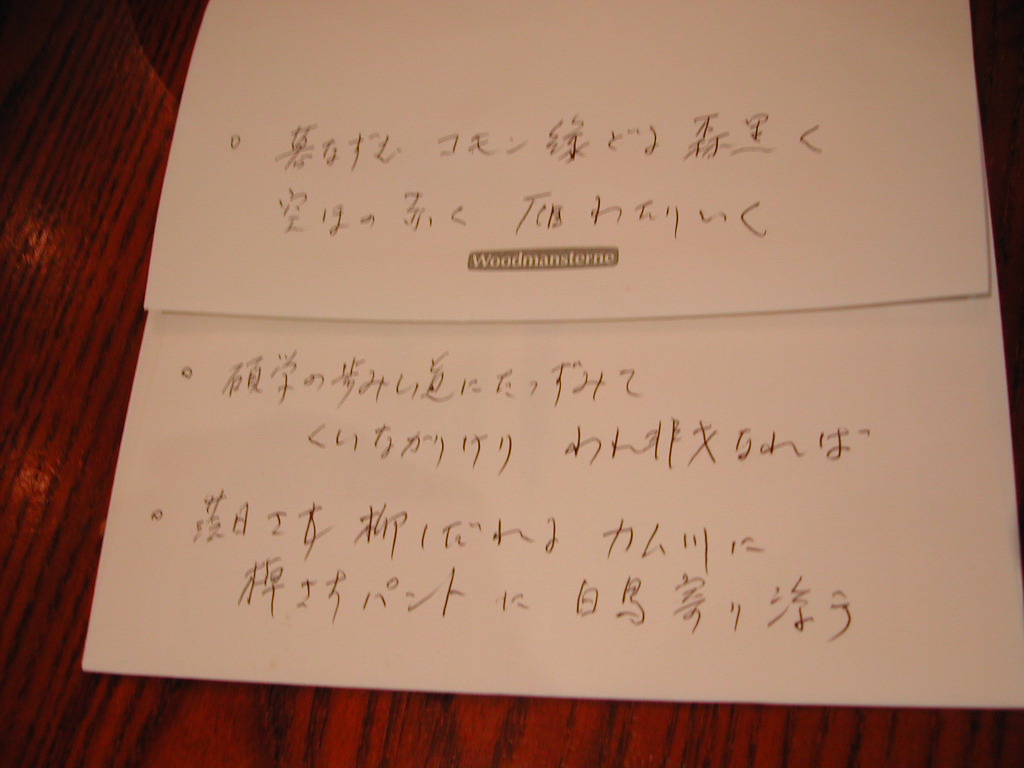 。暮なずむ コモン緑どる 森黒く
空ほの赤く 雁わたりいく
Woodmansterne
。碩学の歩みし道にたゝずみて
くいなかりけり われ非才なれば
。薄日さす 柳しだれる カム川に
棹さすパントに 白鳥寄り添う